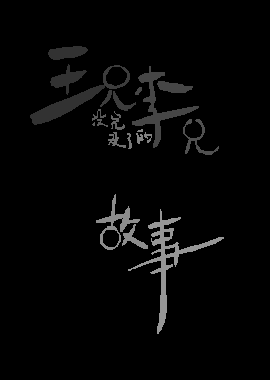 王兄李兄
没完
没了的
故事